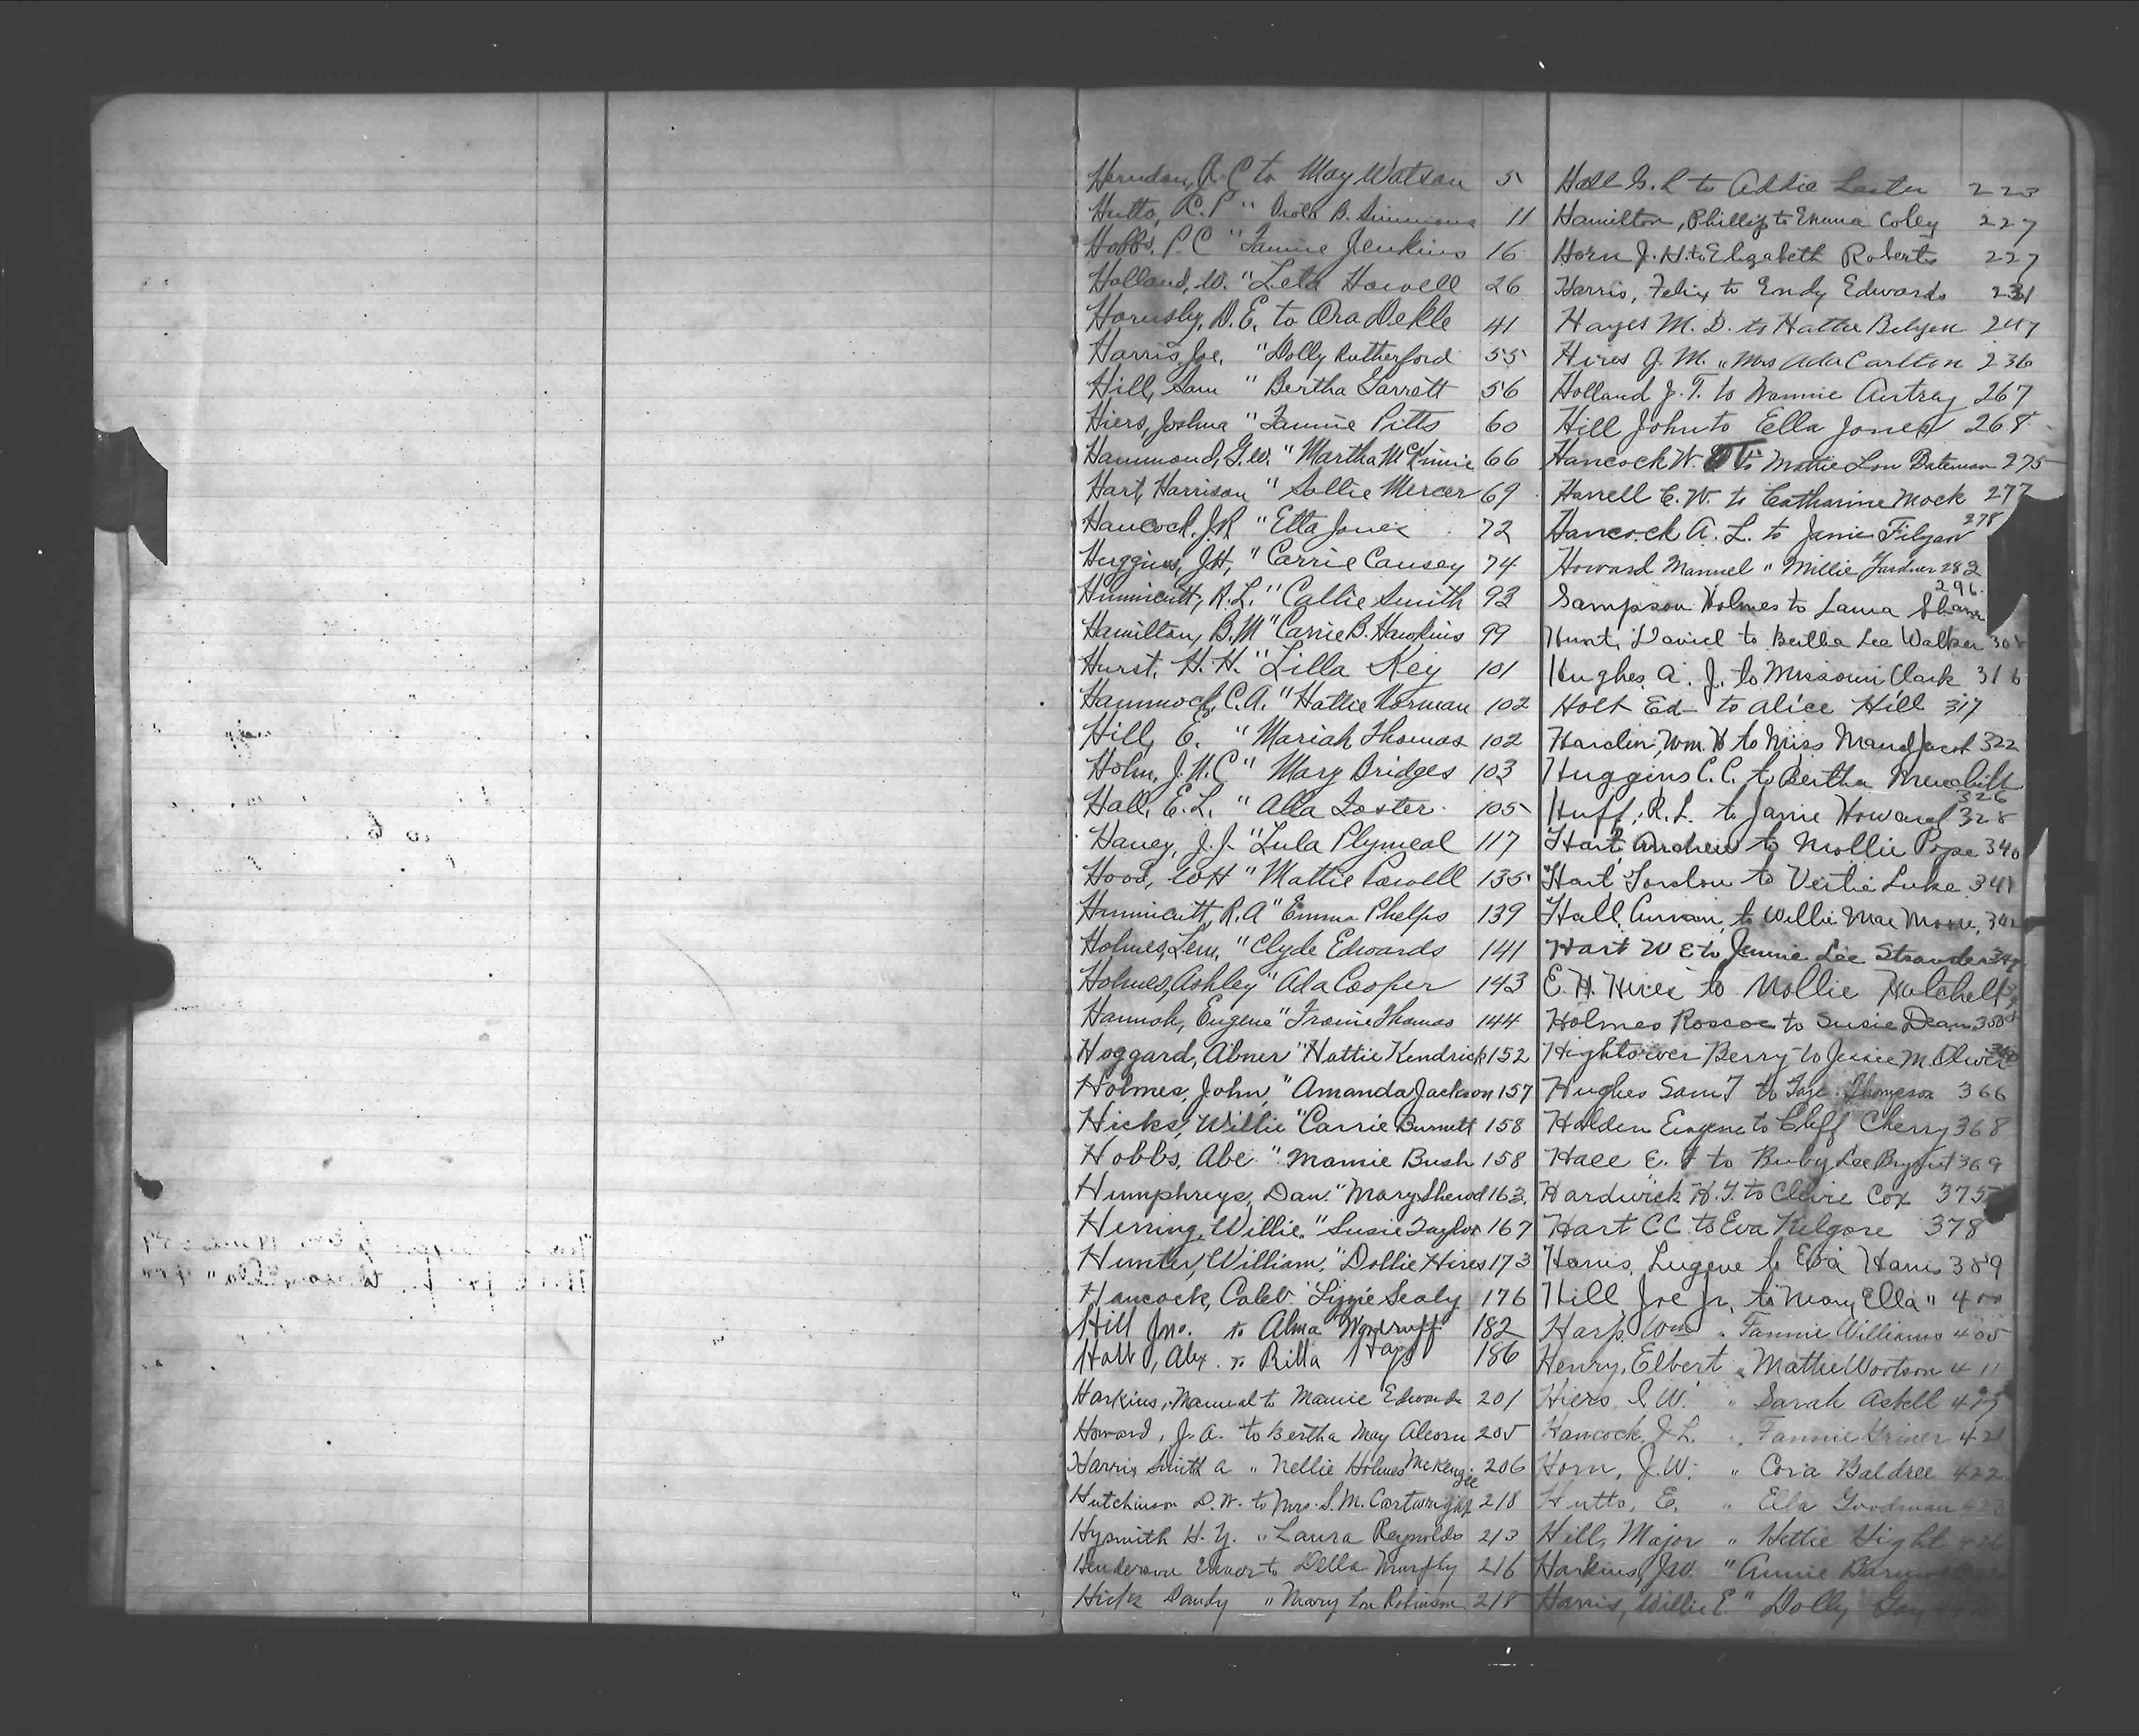 Herndon, A. C to May Watson 5
Hutto, R. P " B. Simmons 11
Hobbs, P. C " Fannie Jenkins 16
Holland, W. " Leta Howell 26
Hornsby, D. E. to Ora Dekle 41
Harris, Joe, " Dolly Rutherford 55
Hill, Sam " Bertha Garrett 56
Hiers, Joshua " Fannie Pitts 60
Hammond, G. W. " Martha McKinnie 66
Hart, Harrison " Sallie Mercer 69
Hancock, J. R. " Etta Jones 72
Huggins, J. H. " Carrie Causey 74
Hunnicutt, R. L. " Callie Smith 93
Hamilton, B. M " Carrie B. Hawkins 99
Hurst, H. H. " Lilla Key 101
Hammock, C. A. " Hattie Norman 102
Hill, E. " Mariah Thomas 102
Holm, J. N. C " Mary Bridges 103
Hall, E. L. " Alla Foster 105
Haney, J. J. " Lula Plymeal 117
Hood, W H " Mattie Powell 135
Hunnicutt, R. A " Emma Phelps 139
Holmes, Lem, " Clyde Edwards 141
Holmes, Ashley " Ada Cooper 143
Hannah, Eugene " Thomas 144
Hoggard, Abner " Hattie Kendrick 152
Holmes, John, " Amanda Jackson 157
Hicks, Willie " Carrie Burnett 158
Hobbs, Abe " Mamie Bush 158
Humphreys, Dan. " Mary Sherod 163
Herring, Willie. " Susie Taylor 167
Hunter, William, " Dollie Hires 173
Hancock, Caleb " Lizzie Sealy 176
Hill Jno. to Alma Woodruff 182
Hall, Alex. to Rilla Hays 186
Harkins, Manual to Mamie Edwards 201
Howard, J. A. to Bertha May Alcorn 205
Harris Smith a " Nellie Holmes McKenzie 206
Hutchinson D. W. to Mrs. S. M. Cartwright 218
Hysmith H. Y. " Laura Reynolds 213
Henderson to Della Murphy 216
Hicks Dandy " Mary Lou Robinson 218
Hall G. L to Addie Lester 223
Hamilton, Phillip to Emma Coley 227
Horn J. H. to Elizabeth Roberts 227
Harris, Felix to Endy Edwards 231
Hayes M. D. to Hattie 247
Hires J. M. " Mrs Ada Carlton 236
Holland J. T. to Nannie Autrey 267
Hill John to Ella Jones 268
Hancock W. to Mattie Lou Bateman 275
Harrell C. W. to Catharine Mock 277
Hancock A. L. to Janie Filyaw 278
Howard Manuel " Millie Gardner 282
Sampson Holmes to Laura 296
Hunt, Daniel to Bertha Lee Walker
Hughes A. J. to Missouri Clark 316
Holt Ed to Alice Hill 317
Hardin, Wm. H to Miss Maud Jacob 322
Huggins C. C. to Bertha 326
Huff, R. L. to Janie Howard 328
Hart Andrew to Mollie Pope 340
Hart Jordon to Vertie Luke 341
Hall to Willie Mae Moore
Hart W E to Jennie Lee
E. H. Hires to Mollie
Holmes Roscoe to Susie Dean
Hightower Berry to Jessie M. Oliver
Hughes Sam T to Thompson 366
Holden Eugene to Cleff Cherry 368
Hall E. to Ruby Lee Bryant 369
Hardwick H. T. to Clevie Cox 375
Hart C C to Eva Kilgore 378
Harris, Eugene to Eva Harris 389
Hill Joe Jr. to Mary Ella " 400
Harp Wm " Fannie Williams 405
Henry, Elbert " Mattie Wootson 411
Hiers, I. W. " Sarah Askell
Hancock, J. L. " Fannie Griner 421
Horn, J. W. " Cora Baldree 422
Hutto, E. " Ella Goodman
Hill, Major " Hettie Hight 426
Harkins, J. W. " Annie
Harris, Willie E. " Dolly Gay